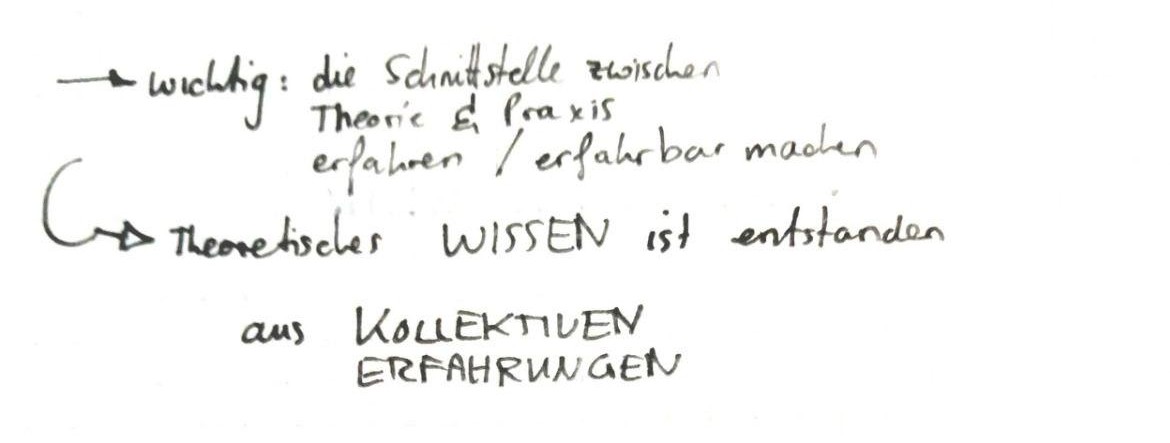 → wichtig: die Schnittstelle zwischen
Theorie & Praxis
erfahren / erfahrbar machen
→ Theoretisches WISSEN ist entstanden
aus KOLLEKTIVEN
ERFAHRUNGEN